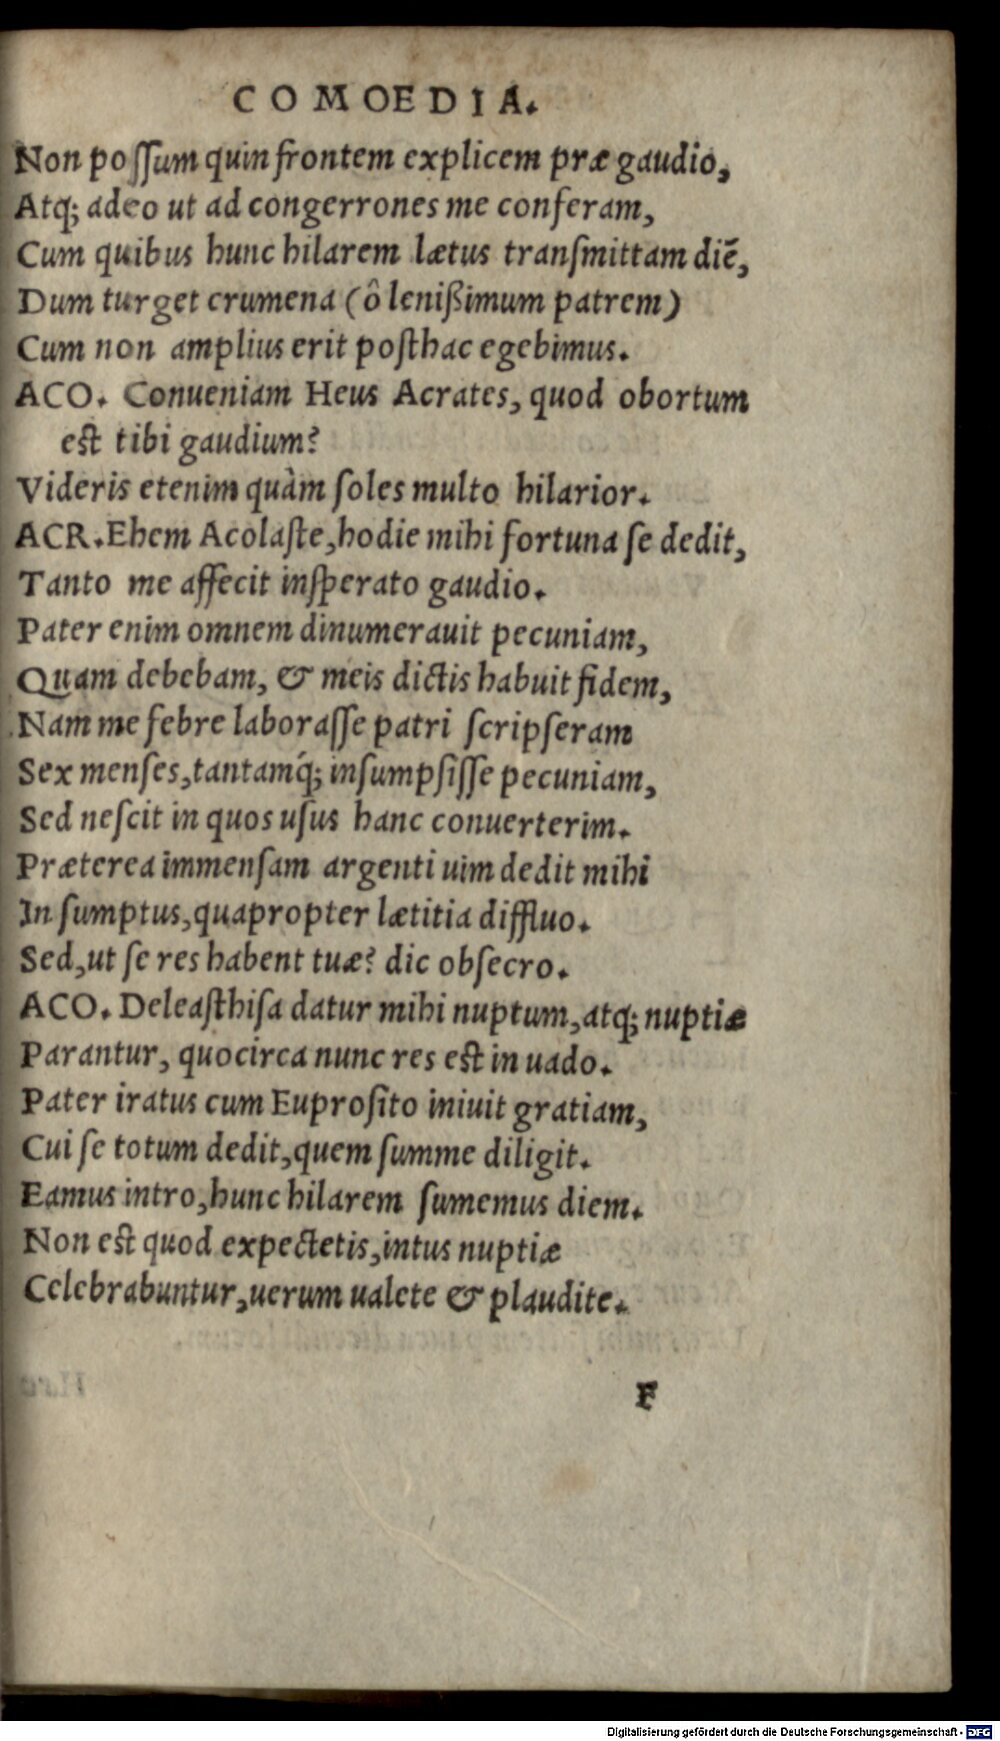 COMOEDIA.
Non poſſum quin frontem explicem præ gaudio,
Atq; adeo ut ad congerrones me conferam,
Cum quibus hunc hilarem lætus tranſmittam diē,
Dum turget crumena (ô lenißimum patrem)
Cum non amplius erit poſthac egebimus.
ACO. Conueniam Heus Acrates, quod obortum
est tibi gaudium?
Videris etenim quàm ſoles multo hilarior.
ACR. Ehem Acolaſte, hodie mihi fortuna ſe dedit,
Tanto me affecit inſperato gaudio.
Pater enim omnem dinumerauit pecuniam,
Quam debebam, & meis dictis habuit fidem,
Nam me febre laboraſſe patri ſcripſeram
Sex menſes, tantamq́; inſumpſiſſe pecuniam,
Sed neſcit in quos uſus hanc conuerterim.
Præterea immenſam argenti uim dedit mihi
In ſumptus, quapropter lætitia diffluo.
Sed, ut ſe res habent tuæ? dic obſecro.
ACO. Deleaſthiſa datur mihi nuptum, atq; nuptiæ
Parantur, quocirca nunc res est in uado.
Pater iratus cum Euproſito iniuit gratiam,
Cui ſe totum dedit, quem ſumme diligit.
Eamus intro, hunc hilarem ſumemus diem.
Non est quod expectetis, intus nuptiæ
Celebrabuntur, uerum ualete & plaudite.
F
Digitalisierung gefördert durch die Deutsche Forschungsgemeinschaft - DFG